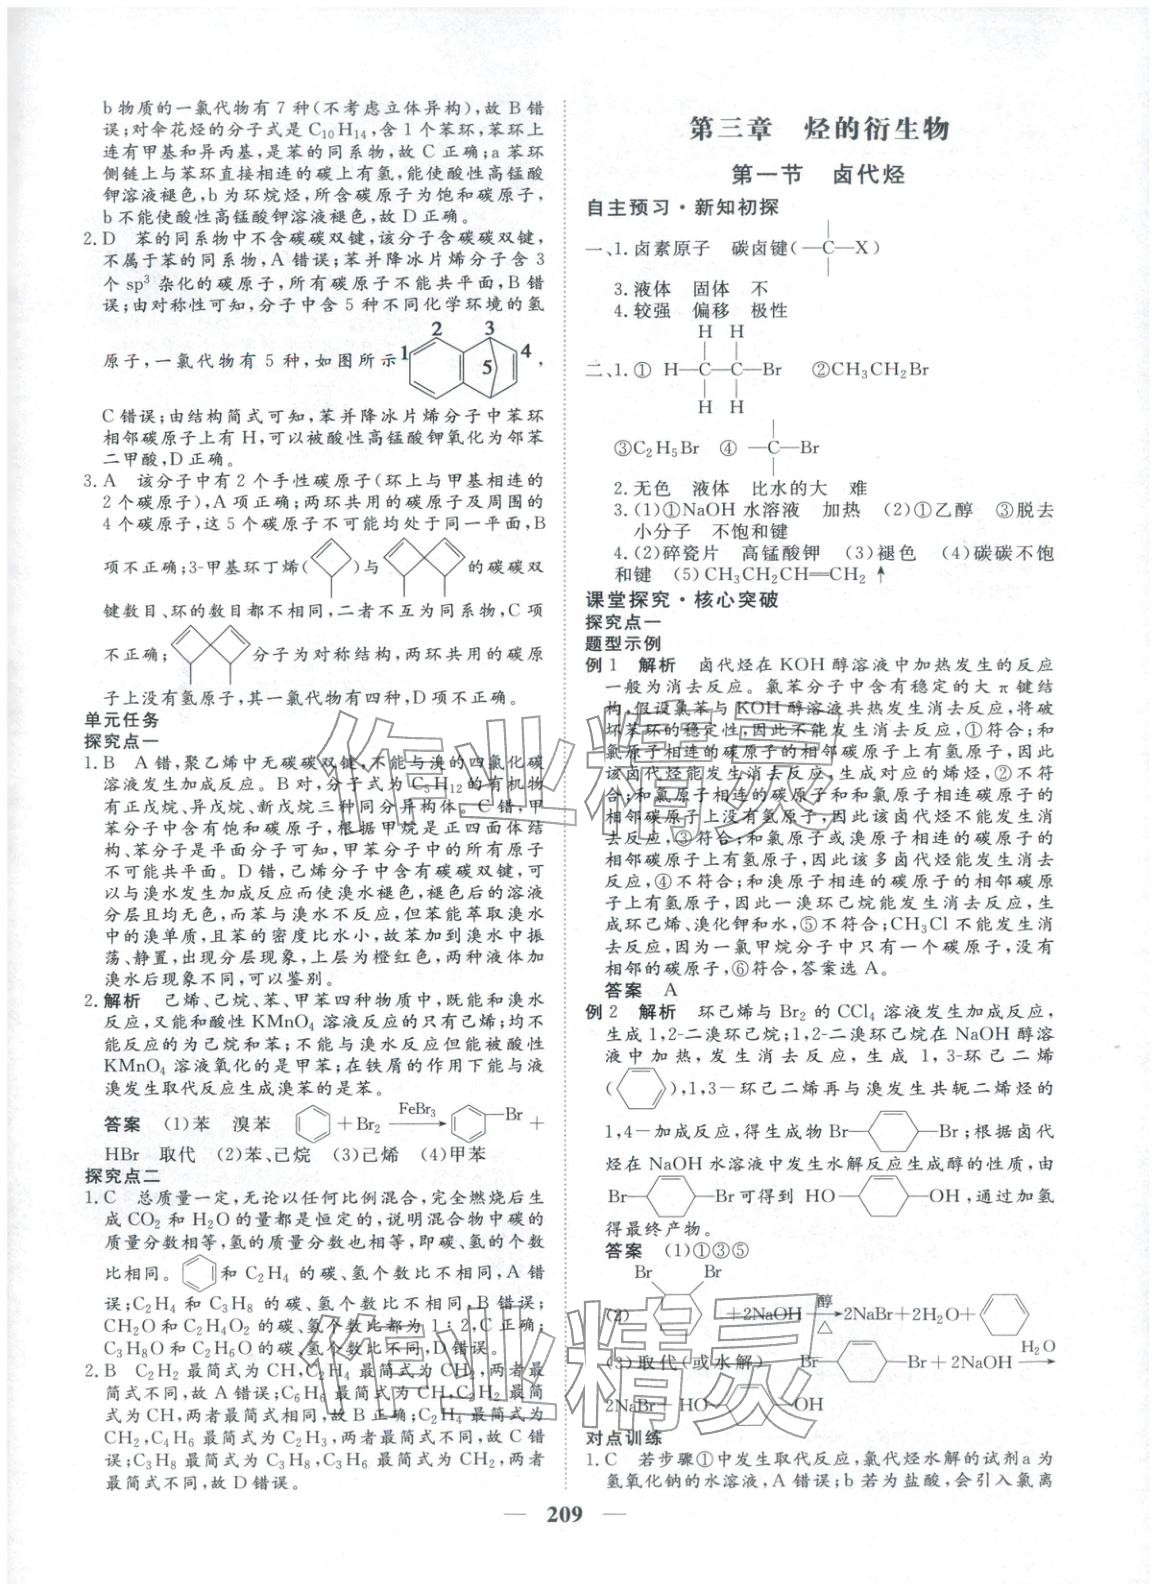 b物质的一氯代物有7种(不考虑立体异构),故B错
误;对伞花烃的分子式是C₁₀H₁₄,含1个苯环,苯环上
连有甲基和异丙基,是苯的同系物,故C正确;a苯环
侧链上与苯环直接相连的碳上有氢,能使酸性高锰酸
钾溶液褪色,b为环烷烃,所含碳原子为饱和碳原子,
b不能使酸性高锰酸钾溶液褪色,故D正确。
2.D 苯的同系物中不含碳碳双键,该分子含碳碳双键,
不属于苯的同系物,A错误;苯并降冰片烯分子含3
个sp³杂化的碳原子,所有碳原子不能共平面,B错
误;由对称性可知,分子中含5种不同化学环境的氢
原子,一氯代物有5种,如图所示 1 2 3 4 5 ,
C错误;由结构简式可知,苯并降冰片烯分子中苯环
相邻碳原子上有H,可以被酸性高锰酸钾氧化为邻苯
二甲酸,D正确。
3.A 该分子中有2个手性碳原子(环上与甲基相连的
2个碳原子),A项正确;两环共用的碳原子及周围的
4个碳原子,这5个碳原子不可能均处于同一平面,B
项不正确;3-甲基环丁烯( )与 的碳碳双
键数目、环的数目都不相同,二者不互为同系物,C项
不正确; 分子为对称结构,两环共用的碳原
子上没有氢原子,其一氯代物有四种,D项不正确。
单元任务
探究点一
1.B A错,聚乙烯中无碳碳双键,不能与溴的四氯化碳
溶液发生加成反应。B对,分子式为C₅H₁₂的有机物
有正戊烷、异戊烷、新戊烷三种同分异构体。C错,甲
苯分子中含有饱和碳原子,根据甲烷是正四面体结
构、苯分子是平面分子可知,甲苯分子中的所有原子
不可能共平面。D错,己烯分子中含有碳碳双键,可
以与溴水发生加成反应而使溴水褪色,褪色后的溶液
分层且均无色,而苯与溴水不反应,但苯能萃取溴水
中的溴单质,且苯的密度比水小,故苯加到溴水中振
荡、静置,出现分层现象,上层为橙红色,两种液体加
溴水后现象不同,可以鉴别。
2.解析 己烯、己烷、苯、甲苯四种物质中,既能和溴水
反应,又能和酸性KMnO₄溶液反应的只有己烯;均不
能反应的为己烷和苯;不能与溴水反应但能被酸性
KMnO₄溶液氧化的是甲苯;在铁屑的作用下能与液
溴发生取代反应生成溴苯的是苯。
答案 (1)苯 溴苯 +Br₂ FeBr₃ → —Br+
HBr 取代 (2)苯、己烷 (3)己烯 (4)甲苯
探究点二
1.C 总质量一定,无论以任何比例混合,完全燃烧后生
成CO₂和H₂O的量都是恒定的,说明混合物中碳的
质量分数相等,氢的质量分数也相等,即碳、氢的个数
比相同。 和C₂H₄的碳、氢个数比不相同,A错
误;C₂H₄和C₃H₈的碳、氢个数比不相同,B错误;
CH₂O和C₂H₄O₂的碳、氢个数比都为1∶2,C正确;
C₃H₈O和C₂H₆O的碳、氢个数比不同,D错误。
2.B C₂H₂最简式为CH,C₂H₄最简式为CH₂,两者最
简式不同,故A错误;C₆H₆最简式为CH,C₂H₂最简式
为CH,两者最简式相同,故B正确;C₂H₄最简式为
CH₂,C₄H₆最简式为C₂H₃,两者最简式不同,故C错
误;C₃H₈最简式为C₃H₈,C₃H₆最简式为CH₂,两者
最简式不同,故D错误。
第三章 烃的衍生物
第一节 卤代烃
自主预习·新知初探
一、1.卤素原子 碳卤键(—C—X)
3.液体 固体 不
4.较强 偏移 极性
H H
二、1.① H—C—C—Br ②CH₃CH₂Br
H H
③C₂H₅Br ④ —C—Br
2.无色 液体 比水的大 难
3.(1)①NaOH水溶液 加热 (2)①乙醇 ③脱去
小分子 不饱和键
4.(2)碎瓷片 高锰酸钾 (3)褪色 (4)碳碳不饱
和键 (5)CH₃CH₂CH═CH₂↑
课堂探究·核心突破
探究点一
题型示例
例1 解析 卤代烃在KOH醇溶液中加热发生的反应
一般为消去反应。氯苯分子中含有稳定的大π键结
构,假设氯苯与KOH醇溶液共热发生消去反应,将破
坏苯环的稳定性,因此不能发生消去反应,①符合;和
氯原子相连的碳原子的相邻碳原子上有氢原子,因此
该卤代烃能发生消去反应,生成对应的烯烃,②不符
合;和氯原子相连的碳原子和和氯原子相连碳原子的
相邻碳原子上没有氢原子,因此该卤代烃不能发生消
去反应,③符合;和氯原子或溴原子相连的碳原子的
相邻碳原子上有氢原子,因此该多卤代烃能发生消去
反应,④不符合;和溴原子相连的碳原子的相邻碳原
子上有氢原子,因此一溴环己烷能发生消去反应,生
成环己烯、溴化钾和水,⑤不符合;CH₃Cl不能发生消
去反应,因为一氯甲烷分子中只有一个碳原子,没有
相邻的碳原子,⑥符合,答案选A。
答案 A
例2 解析 环己烯与Br₂的CCl₄溶液发生加成反应,
生成1,2-二溴环己烷;1,2-二溴环己烷在NaOH醇溶
液中加热,发生消去反应,生成1,3-环己二烯
( ),1,3－环己二烯再与溴发生共轭二烯烃的
1,4－加成反应,得生成物Br— —Br;根据卤代
烃在NaOH水溶液中发生水解反应生成醇的性质,由
Br— —Br可得到HO— —OH,通过加氢
得最终产物。
答案 (1)①③⑤
Br Br
(2) +2NaOH 醇 △ → 2NaBr+2H₂O+
(3)取代(或水解) Br— —Br+2NaOH H₂O →
2NaBr+HO— —OH
对点训练
1.C 若步骤①中发生取代反应,氯代烃水解的试剂a为
氢氧化钠的水溶液,A错误;b若为盐酸,会引入氯离
209
作业精灵
作业精灵